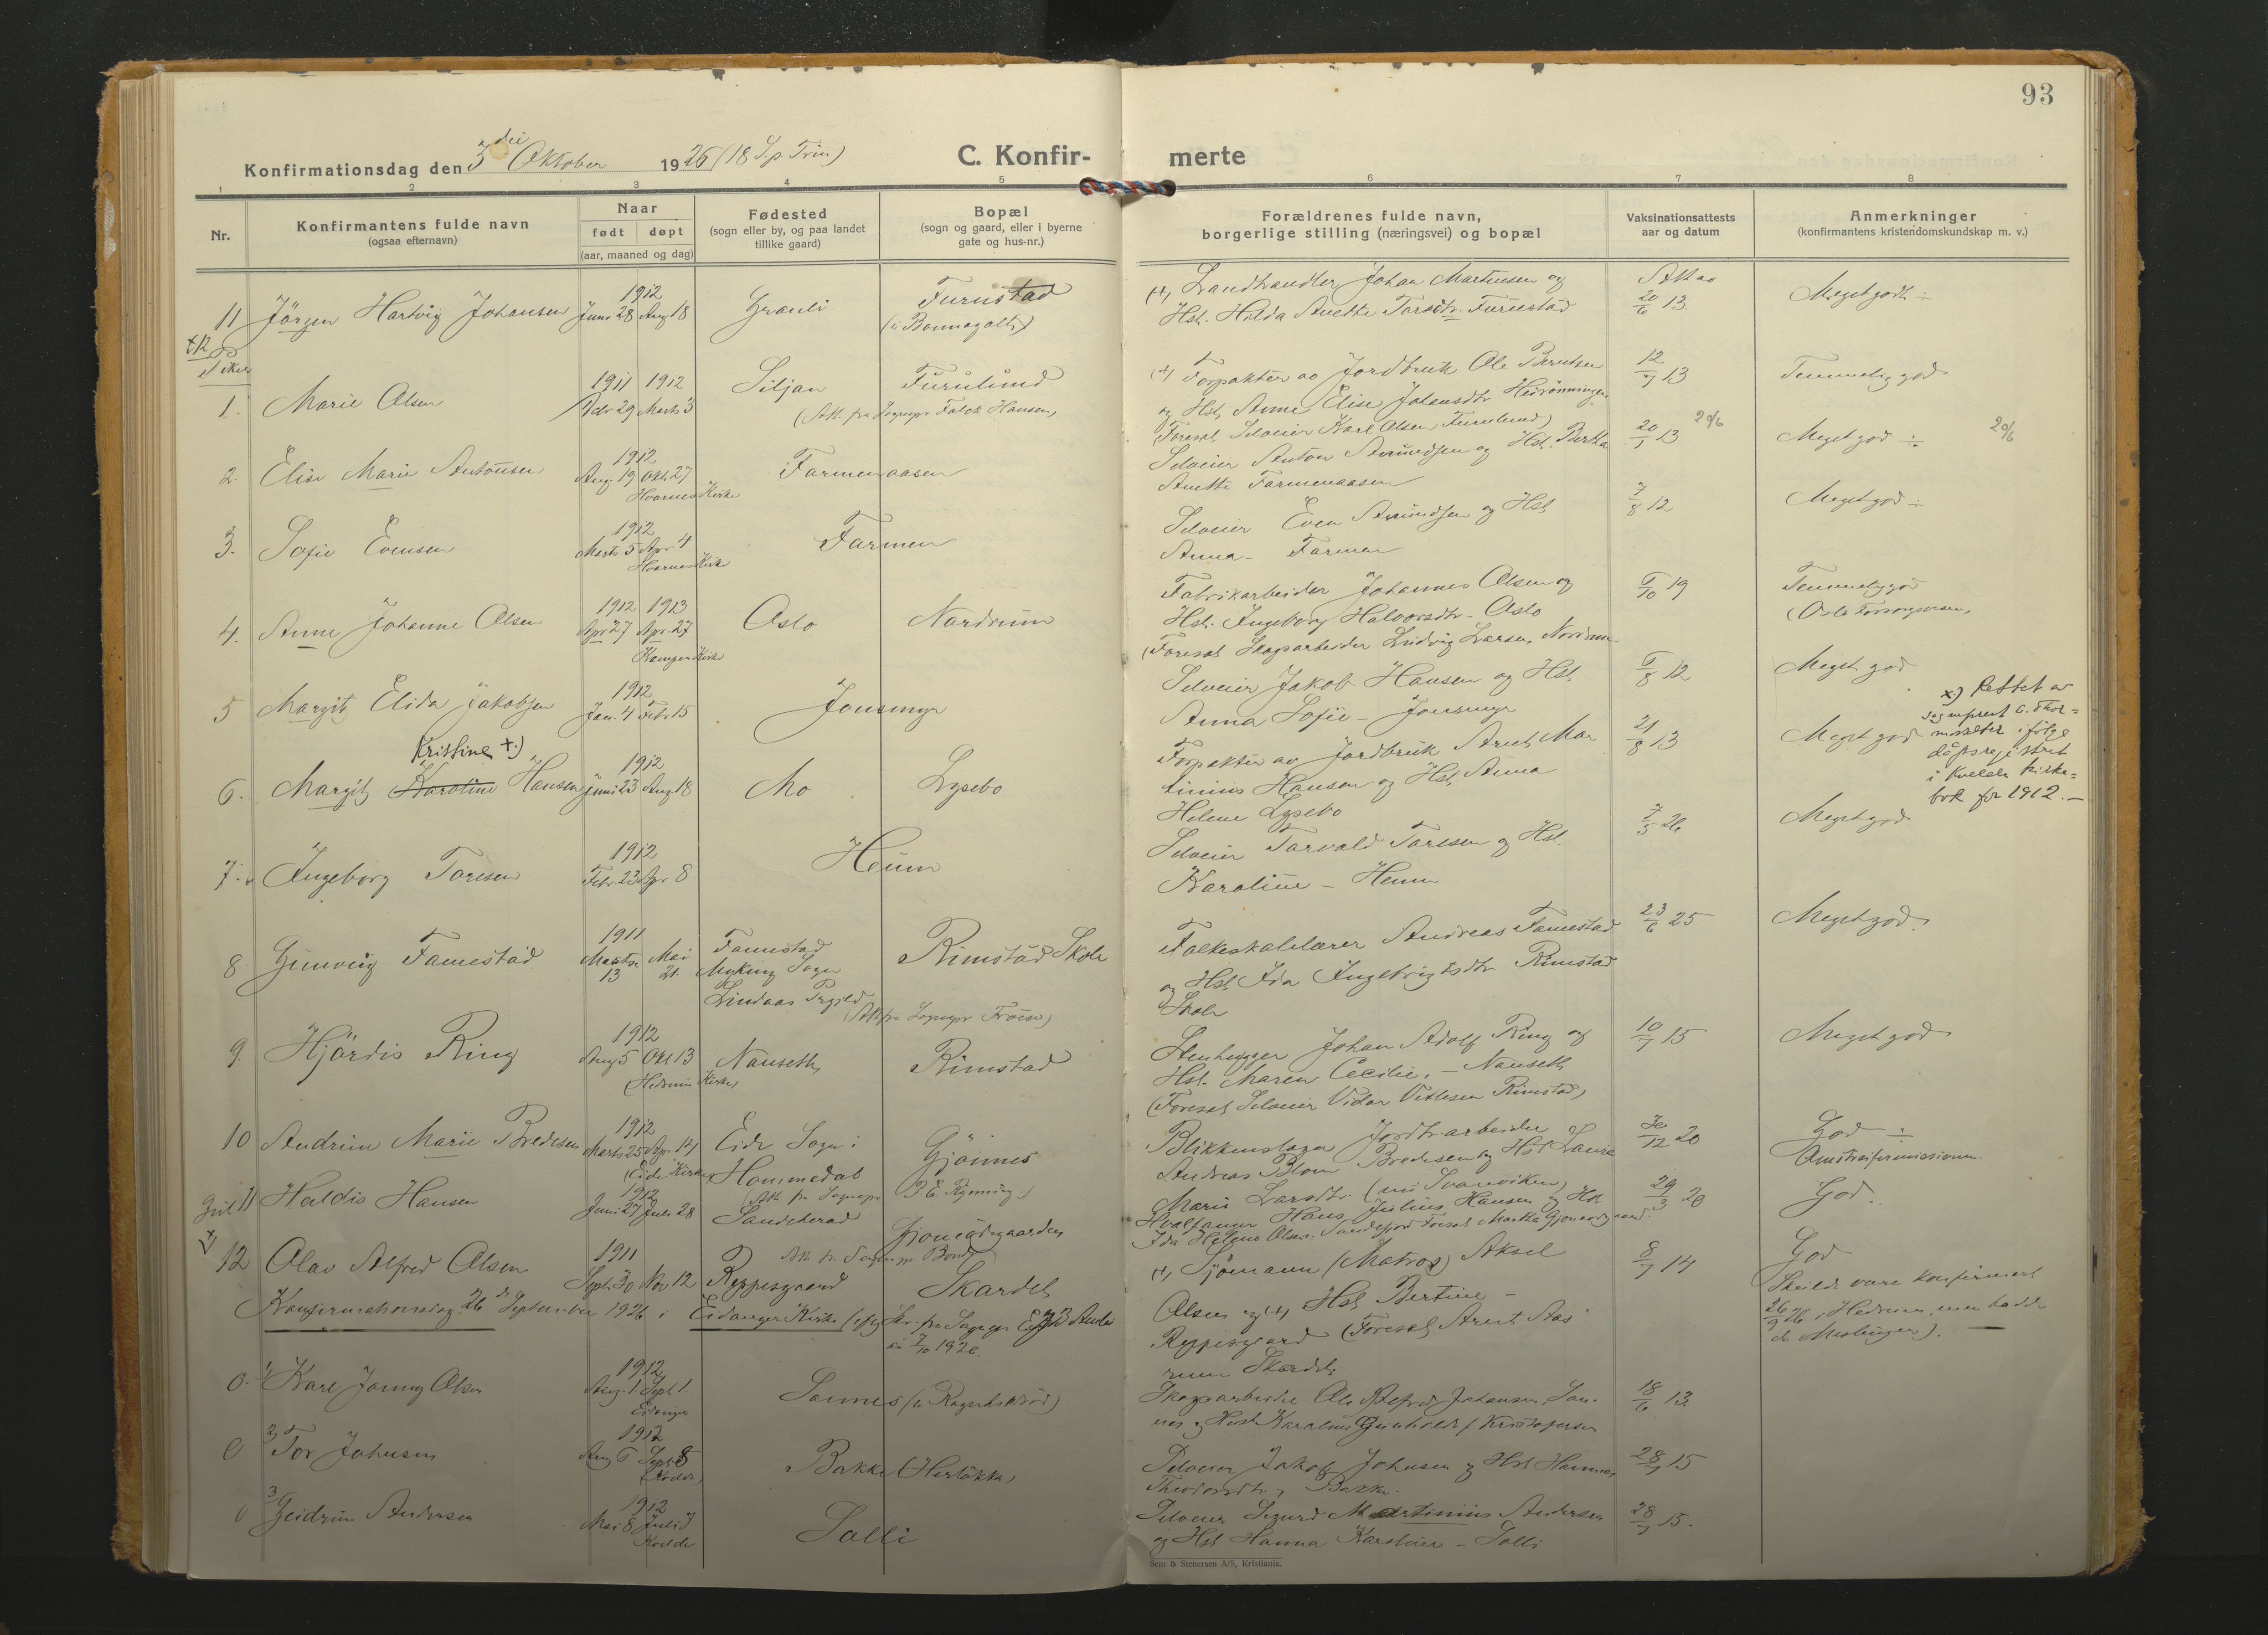 93
Konfirmationsdag den 3die Oktober 1926 (18 S. p. Trin)
C. Konfir- merte
1 2 3 4 5 6 7 8
Nr.
Konfirmantens fulde navn
(ogsaa efternavn)
Naar
født døpt
(aar, maaned og dag)
Fødested
(sogn eller by, og paa landet
tillike gaard)
Bopæl
(sogn og gaard, eller i byerne
gate og hus-nr.)
Forældrenes fulde navn,
borgerlige stilling (næringsvei) og bopæl
Vaksinationsattests
aar og datum
Anmerkninger
(konfirmantens kristendomskundskap m. v.)
11 Jörgen Hartvig Johansen 1912 Juni 28 Aug 18 Grauli Furustad
(+) Landhandler Johan Martinsen og
Hst. Hilda Anette Torsdtr. Furustad
20/6 13
Meget godt ÷
Piker
1. Marie Olsen 1911 1912 Marts 3 Siljan Furulund
(Att. fra Sognepr Falck Hansen)
(+) Forpakter av Jordbruk Ole Berntsen
og Hst. Anne Elise Johansdtr
(Foresat Selveier Karl Olsen Furulund)
12/7 13
Temmelig god
2. Elise Marie Antonsen 1912 Aug. 19 Okt. 27
Hvarnes Kirke
Farmenaasen
Selveier Anton Amundsen og Hst. Berthe
Anette Farmenaasen
20/1 13 20/6
Meget god ÷ 20/6
3. Sofie Evensen 1912 Marts 5 Apr. 4
Hvarnes Kirke
Farmen
Selveier Even Amundsen og Hst
Anna - Farmen
7/8 12
Meget god ÷
4. Anne Johanne Olsen 1912 1913 Apr 27 Apr. 27
Kampen Kirke
Oslo Nordrum
Fabrikarbeider Johannes Olsen og
Hst. Ingeborg Halvorsdtr - Oslo
(Foresat Skogsarbeider Ludvig Larsen Nordrum
6/10 19
Temmelig god
5 Margit Elida Jakobsen 1912 Jan. 4 Febr 15 Jonsmyr
Selveier Jakob Hansen og Hst
Anna Sofie - Jonsmyr
6/8 12
Meget god
Kristine +)
6. Margit Karoline Hansen 1912 Juni 23 Aug 18 Mo Lysebo
Forpakter av Jordbruk Arnt Mar
tinius Hansen og Hst Anna
Helene Lysebo
21/8 13
Meget god
x) Rettet av
sogneprest
i følge
dåpsregistret
i Kvelde kirke=
bok for 1912. -
7. Ingeborg Toresen 1912 Febr 23 Apr 8 Heum
Selveier Torvald Toresen og Hst.
Karoline - Heum
7/5 26
Meget god
8 Gunveig Famestad 1911 Marts 13 Mai 21
Famestad
Myking Sogn
Lindaas Prgjeld
Rimstad Skole
Folkeskolelærer Andreas Famestad
og Hst Ida Ingebrigtsdtr Rimstad
Skole
23/6 25
Meget god.
9. Hjördis Ring 1912 Aug 5 Okt 13
(Hedrum Kirke)
Nanseth Rimstad
Stenhugger Johan Adolf Ring og
Hst. Maren Cecilie. - Nanseth
(Foresat Selveier Vidar Vetlesen Rimstad)
10/7 15
Meget god
10 Andrine Marie Bredesen 1912 Marts 25 Apr. 14
(Eide Kirke)
Eide Sogn i
Hommedal
Gjönnes
Blikkenslager Jordbr.arbeider
Andreas Blom Bredesen og Hst Laura
Marie Larsdtr. (
30/12 20
God ÷
11 Haldis Hansen 1912 Juni 27 Juli 28 Sandeherad
Hvalfanger Hans Julius Hansen og Hst
Ida Helene Olsen. Sandefjord
29/3 20
God.
12 Olav Alfred Olsen 1911 Sept. 30 Nov 12 Reppesgaard Skardet
(+) Sjömann (Matros) Aksel
Olsen og (+) Hst Bertine -
Reppesgaard (Foresat Arnt Aas
Skardet
8/7 14
God
Skulde være konfirmert
26/9 26 i Hedrum, men hadde
da Meslinger).
Konfirmationsdag 26 de September 1926 i Eidanger Kirke
7/10 1926.
1) Karl Jonny Olsen 1912 Aug. 1 Sept. 1.
Eidanger
Sannes
Skogsarbeider Ole Alfred Johansen, San-
nes og Hust Karoline
18/6 13
2) Tor Johnsen 1912 Aug 6 Sept 8
(Kvelde)
Bakke
Selveier Jakob Johnsen og Hst Hanna
Theodorsdtr., Bakke.
28/7 15
3 Geidrun Andersen 1912 Mai 8 Juli 7
Kvelde
Solli
Selveier Sigurd Martinius Andersen
og Hst Hanna - Solli
28/7 15.
Sem & Stenersen A/S, Kristiania.